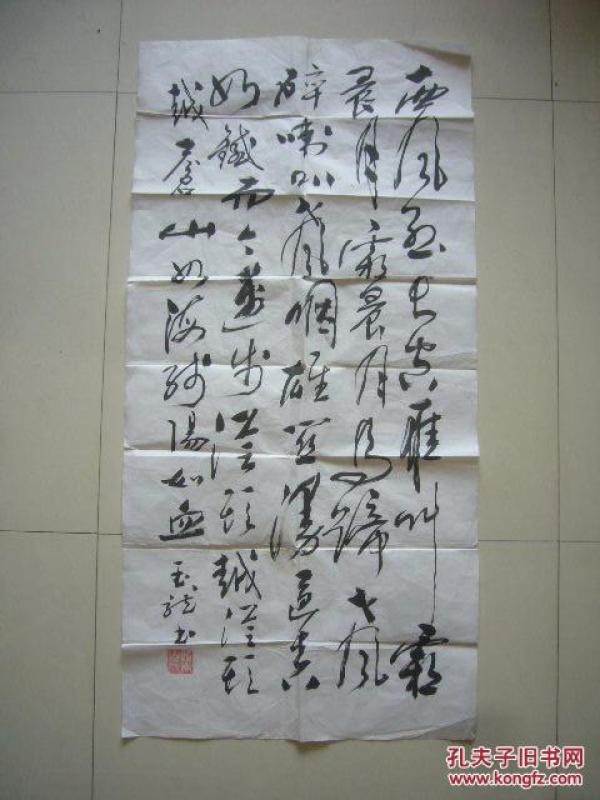 西风烈长空雁叫霜
晨月霜晨月马蹄声
碎喇叭声咽雄关漫道真
如鐵而今邁步從头越從头
越蒼山如海残陽如血 玉龙书
孔夫子旧书网
www.kongfz.com